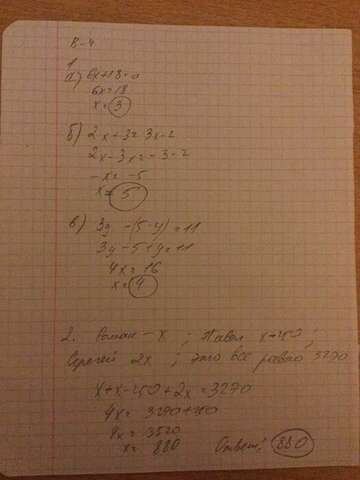 В-4
1
а) 6x+18=0
6x=18
x=3
б) 2x+3=3x-2
2x-3x=-3-2
-x=-5
x=5
в) 3y-(5-y)=11
3y-5+y=11
4x=16
x=4
2. Роман-x; Павел x+250;
Сергей 2x; это все равно 3270
x+x-250+2x=3270
4x=3270+250
4x=3520
x=880
Ответ: 880